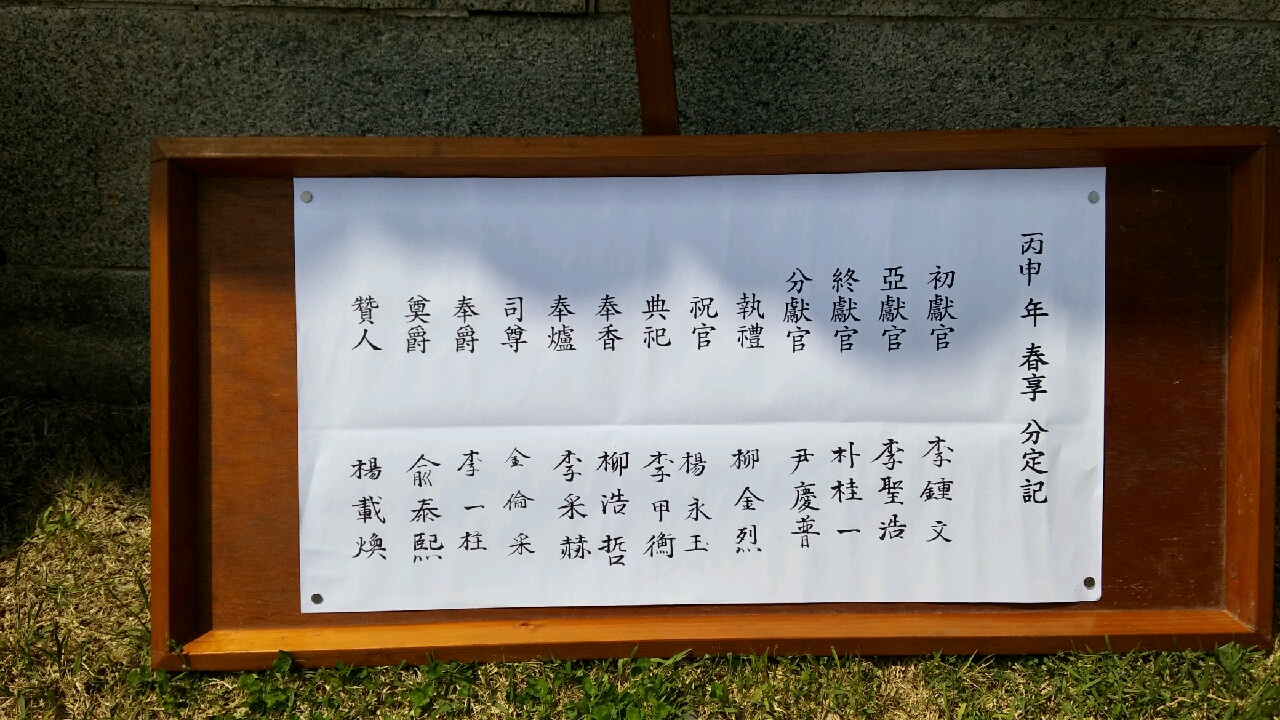 丙申年 春享 分定記
初獻官 李鍾文
亞獻官 李聖浩
終獻官 朴桂一
分獻官 尹慶普
執禮 柳金烈
祝官 楊永玉
典祀 李甲衡
奉香 柳浩哲
奉爐 李采赫
司尊 金倫采
奉爵 李一柱
奠爵 俞泰熙
贊人 楊載煥